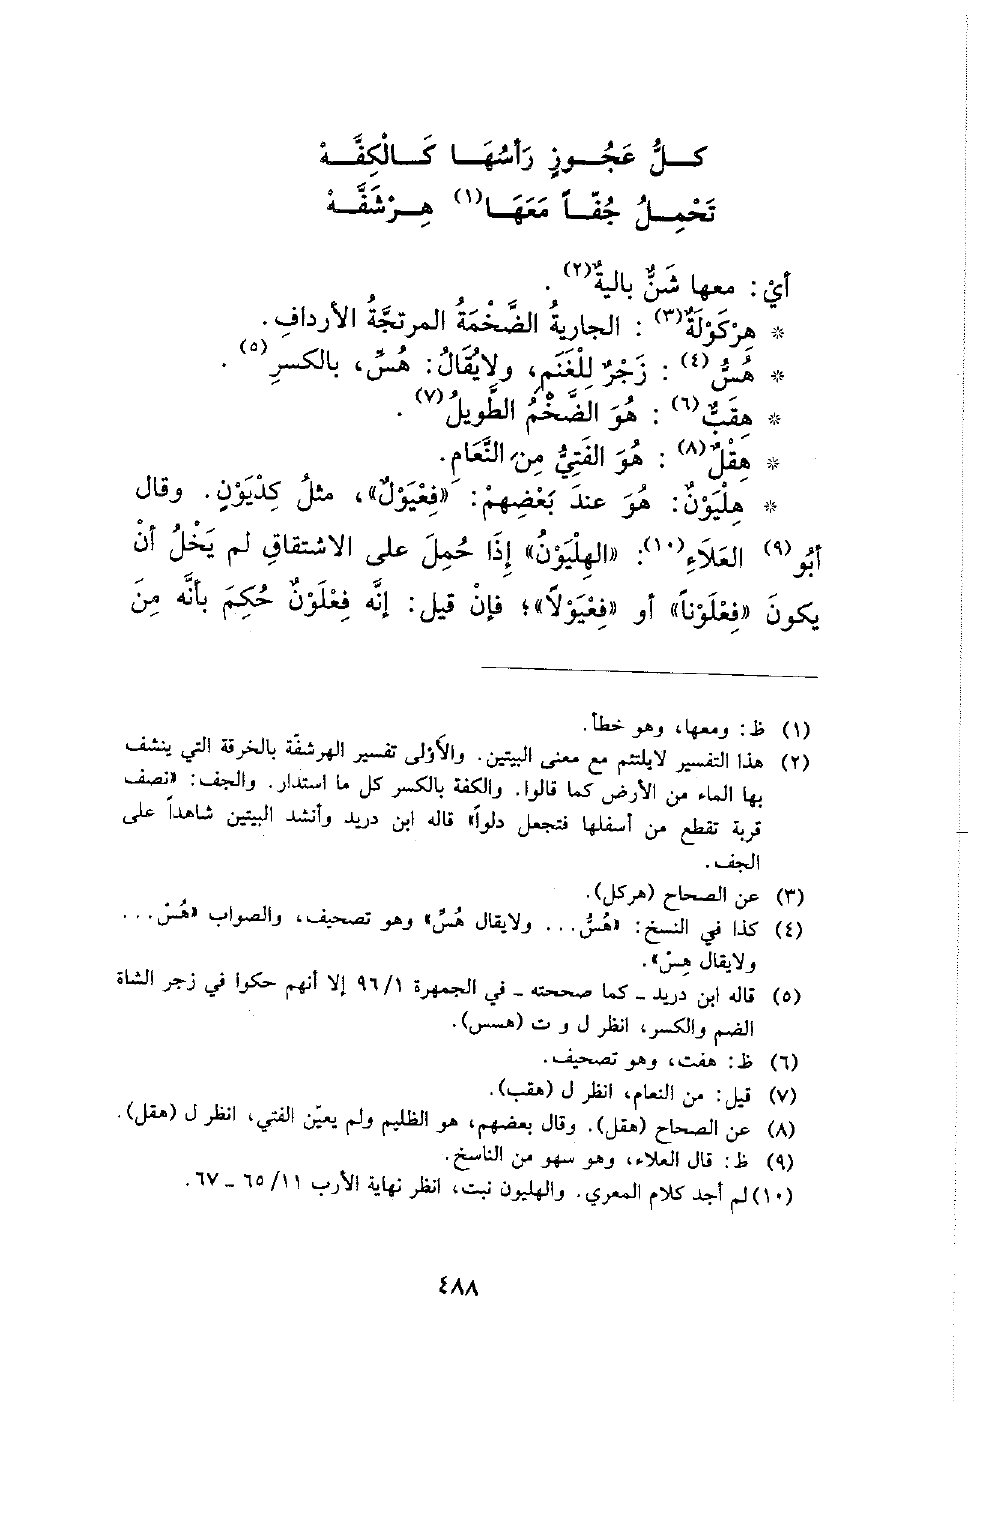 كـلُّ عَجُـوزٍ رَأسُهَـا كَـالْكِفَّـهْ
تَحْمِـلُ جُفّـاً مَعَهَـا(١) هِـرْشَفَّـهْ
أيْ: معها شَنٌّ باليةٌ(٢).
* هِرْكَوْلَةٌ(٣): الجاريةُ الضَّخْمَةُ المرتجَّةُ الأردافِ.
* هُسُّ(٤): زَجْرٌ لِلْغَنَمِ، ولايُقَالُ: هُسِّ، بالكسرِ(٥).
* هِقَبٌّ(٦): هُوَ الضَّخْمُ الطَّويلُ(٧).
* هِقْلٌ(٨): هُوَ الفَتِيُّ مِنَ النَّعَامِ.
* هِلْيَوْنٌ: هُوَ عندَ بَعْضِهِمْ: «فِعْيَوْلٌ»، مثلُ كِدْيَوْنٍ. وقال
أبُو(٩) العَلَاءِ(١٠): «الهِلْيَوْنُ» إِذَا حُمِلَ على الاشتقاقِ لم يَخْلُ أنْ
يكونَ «فِعْلَوْناً» أو «فِعْيَوْلاً»؛ فإنْ قيل: إنَّه فِعْلَوْنٌ حُكِمَ بأنَّه مِنَ
(١) ظ: ومعها، وهو خطأ.
(٢) هذا التفسير لايلتئم مع معنى البيتين. والأوْلى تفسير الهرشفّة بالخرقة التي ينشف
بها الماء من الأرض كما قالوا. والكفة بالكسر كل ما استدار. والجف: «نصف
قربة تقطع من أسفلها فتجعل دلواً» قاله ابن دريد وأنشد البيتين شاهداً على
الجف.
(٣) عن الصحاح (هركل).
(٤) كذا في النسخ: «هُسُّ... ولايقال هُسِّ» وهو تصحيف، والصواب «هُسْ...
ولايقال هِسْ».
(٥) قاله ابن دريد ـ كما صححته ـ في الجمهرة ٩٦/١ إلا أنهم حكوا في زجر الشاة
الضم والكسر، انظر ل و ت (هسس).
(٦) ظ: هفت، وهو تصحيف.
(٧) قيل: من النعام، انظر ل (هقب).
(٨) عن الصحاح (هقل). وقال بعضهم، هو الظليم ولم يعيّن الفتي، انظر ل (هقل).
(٩) ظ: قال العلاء، وهو سهو من الناسخ.
(١٠) لم أجد كلام المعري. والهليون نبت، انظر نهاية الأرب ١١/ ٦٥ ـ ٦٧.
٤٨٨